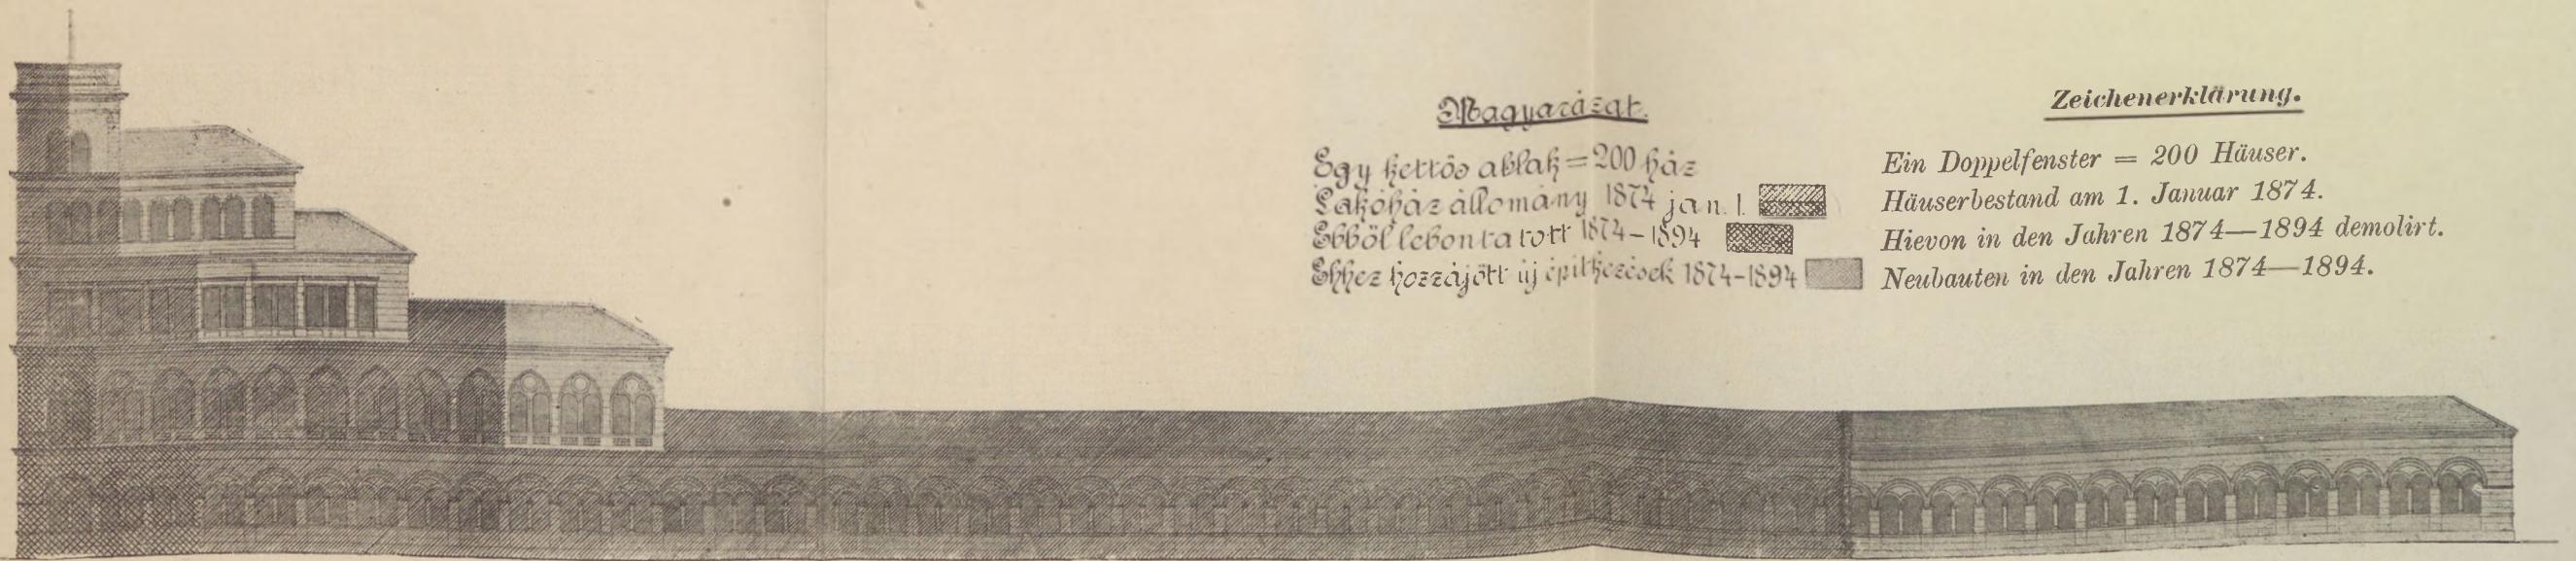 Magyarázat.
Egy kettős ablak = 200 ház
Lakóház állomány 1874 jan. 1.
Ebből lebontatott 1874–1894
Ehhez hozzájött új építkezések 1874–1894
Zeichenerklärung.
Ein Doppelfenster = 200 Häuser.
Häuserbestand am 1. Januar 1874.
Hievon in den Jahren 1874—1894 demolirt.
Neubauten in den Jahren 1874—1894.